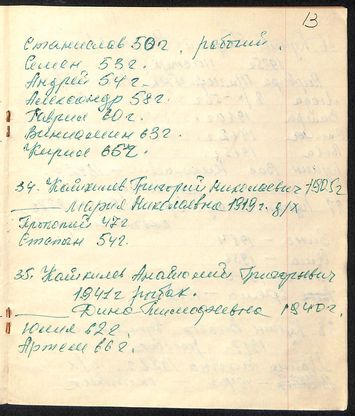 13
Станислав 50 г. рабочий.
Семен 53 г.
Андрей 54 г.
Александр 58 г.
Гаврил 60 г.
Виниамин 63 г.
Кирил 66 г.
34. Григорий Николаевич 1905 г
Мария Николаевна 1919 г. д/х
Прокопий 47 г.
Степан 54 г.
35. Григорьевич
1941 г рыбак.
Дина Тимофеевна 1940 г.
Юлия 62 г.
Артем 66 г.